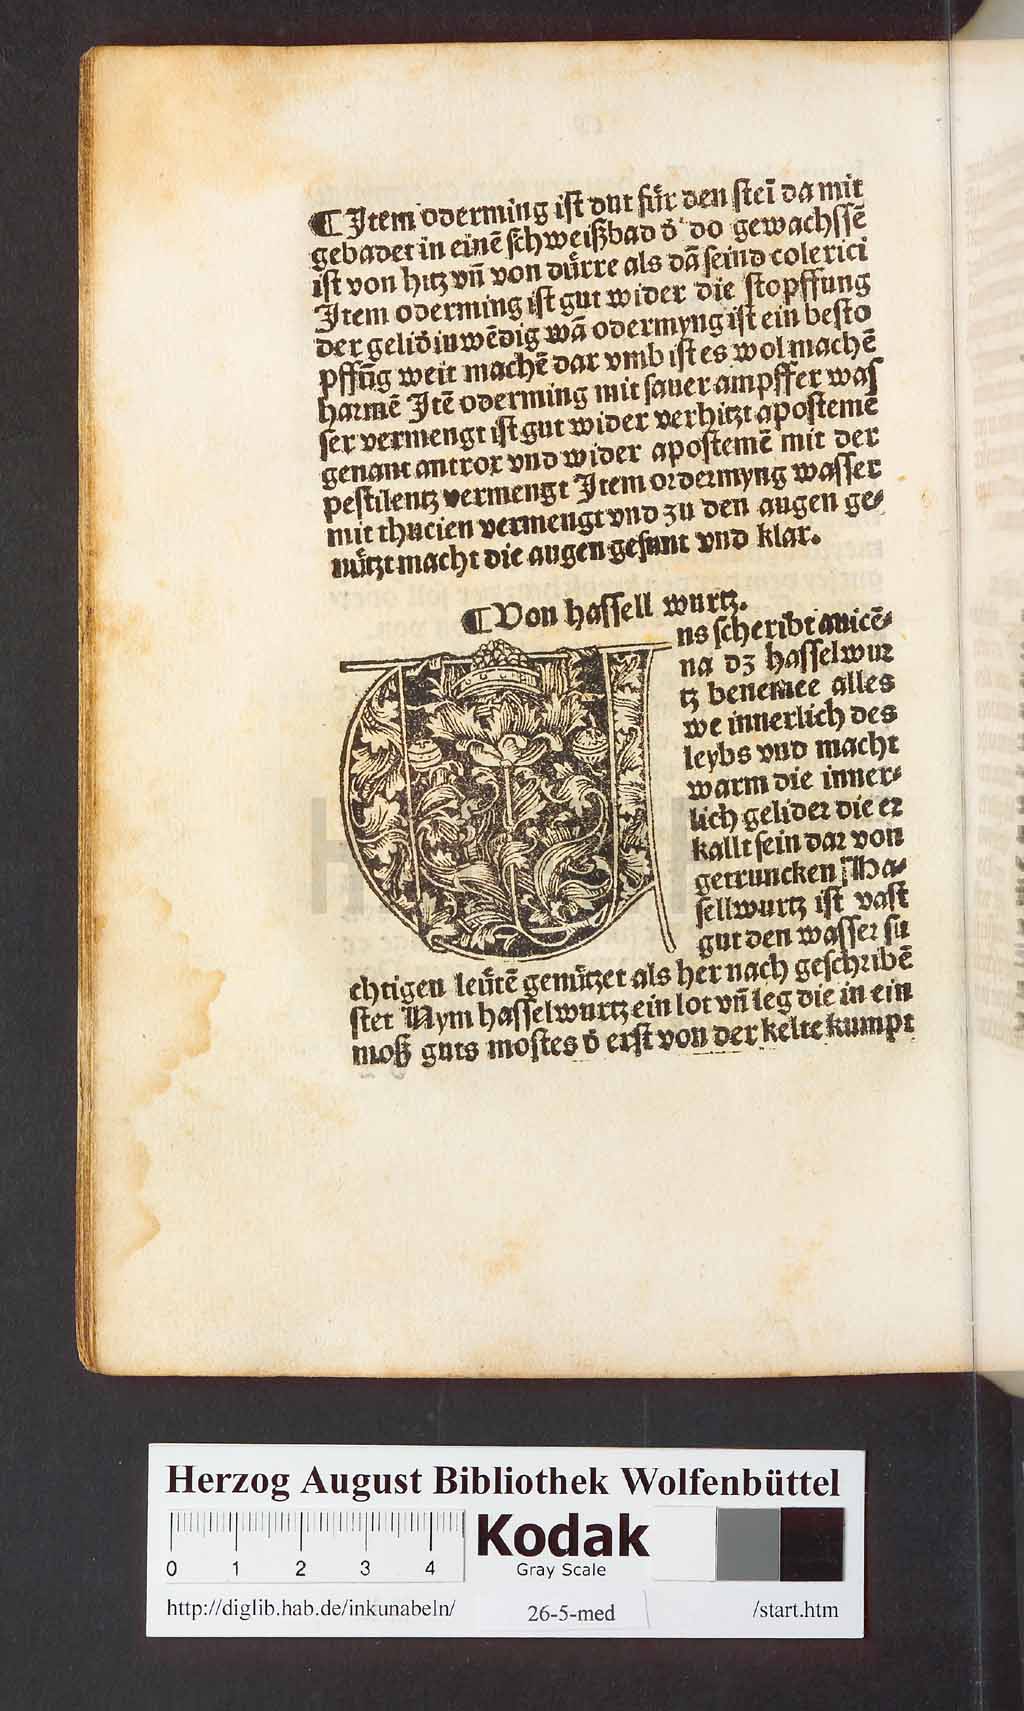 ¶ Item oderming ist gut fuͤr den steī da mit
gebadet in einē schweißbad d̄ do gewachssē
ist von hitz vn̄ von duͤrre als dā seind colerici
Item oderming ist gut wider die stopffung
der gelid̄ inwēdig wā odermyng ist ein besto
pffūg weit machē dar vmb ist es wol machē
harmē Itē oderming mit sauer ampffer was
ser vermengt ist gut wider verhitzt apostemē
genant antrox vnd wider apostemē mit der
pestilentz vermengt Item ordermyng wasser
mit thucien vermengt vnd zu den augen ge⸗
nuͤtzt macht die augen gesunt vnd klar.
¶ Von hassell wurtz.
Uns scheribt auicē⸗
na dz hasselwur
tz benemee alles
we innerlich des
leybs vnd macht
warm die inner⸗
lich gelider die er
kallt sein dar von
getruncken Ha⸗
sellwurtz ist vast
gut den wasser su
chtigen leuͤtē genuͤtzet als her nach geschribē
stet Nym hasselwurtz ein lot vn̄ leg die in ein
moß guts mostes d̄ erst von der kelte kumpt
Herzog August Bibliothek Wolfenbüttel
0 1 2 3 4
Kodak
Gray Scale
http://diglib.hab.de/inkunabeln/ 26-5-med /start.htm